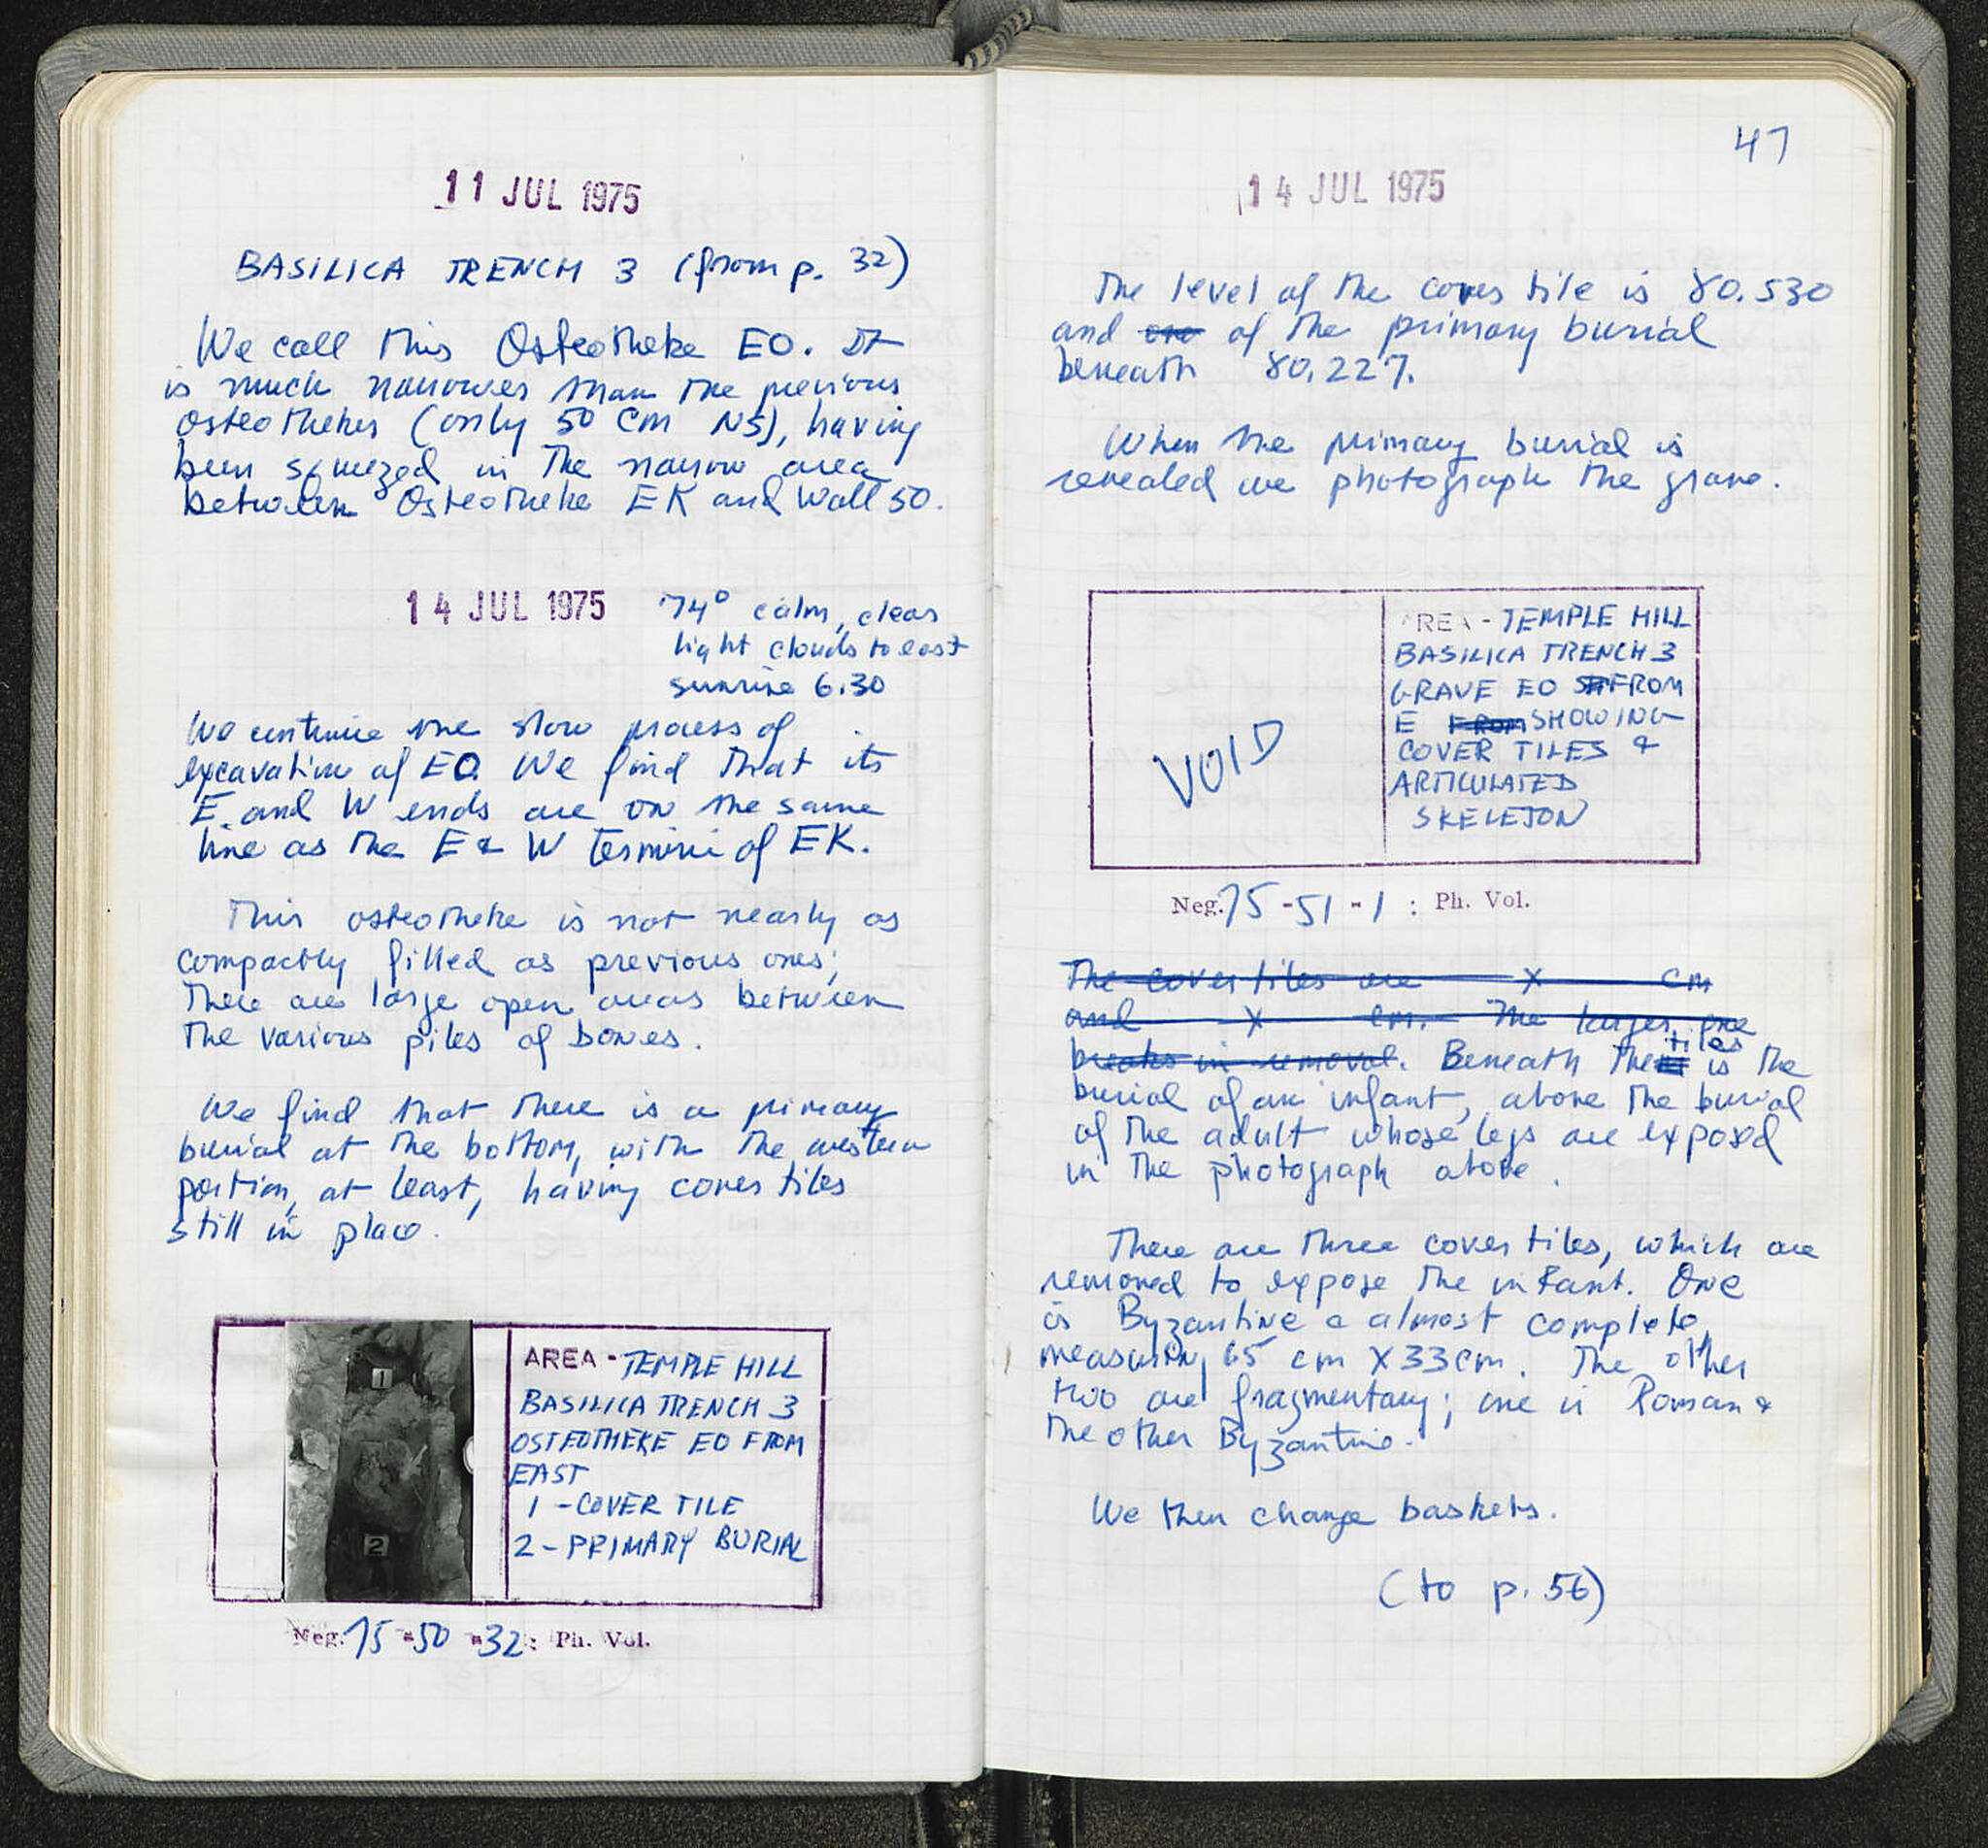 11 JUL 1975
BASILICA TRENCH 3 (from p. 32)
We call this Osteotheke EO. It
is much narrower than the previous
osteothekes (only 50 cm NS), having
been squeezed in the narrow area
between Osteotheke EK and Wall 50.
14 JUL 1975
74° calm, clear
light clouds to east
sunrise 6.30
We continue the slow process of
excavation of EO. We find that its
E. and W ends are on the same
line as the E & W termini of EK.
This osteotheke is not nearly as
compactly filled as previous ones;
there are large open areas between
the various piles of bones.
We find that there is a primary
burial at the bottom, with the western
portion, at least, having cover tiles
still in place.
1
2
AREA - TEMPLE HILL
BASILICA TRENCH 3
OSTEOTHEKE EO FROM
EAST
1 - COVER TILE
2 - PRIMARY BURIAL
Neg. 75-50-32: Ph. Vol.
47
14 JUL 1975
The level of the cover tile is 80.530
and of the primary burial
beneath 80.227.
When the primary burial is
revealed we photograph the grave.
VOID
AREA - TEMPLE HILL
BASILICA TRENCH 3
GRAVE EO FROM
E FROM SHOWING
COVER TILES &
ARTICULATED
SKELETON
Neg. 75-51-1 : Ph. Vol.
The cover tiles are x cm
and x cm. The larger one
breaks in removal. Beneath the tiles is the
burial of an infant, above the burial
of the adult whose legs are exposed
in the photograph above.
There are three cover tiles, which are
removed to expose the infant. One
is Byzantine & almost complete,
measuring 65 cm X 33 cm. The other
two are fragmentary; one is Roman &
the other Byzantine.
We then change baskets.
(to p. 56)